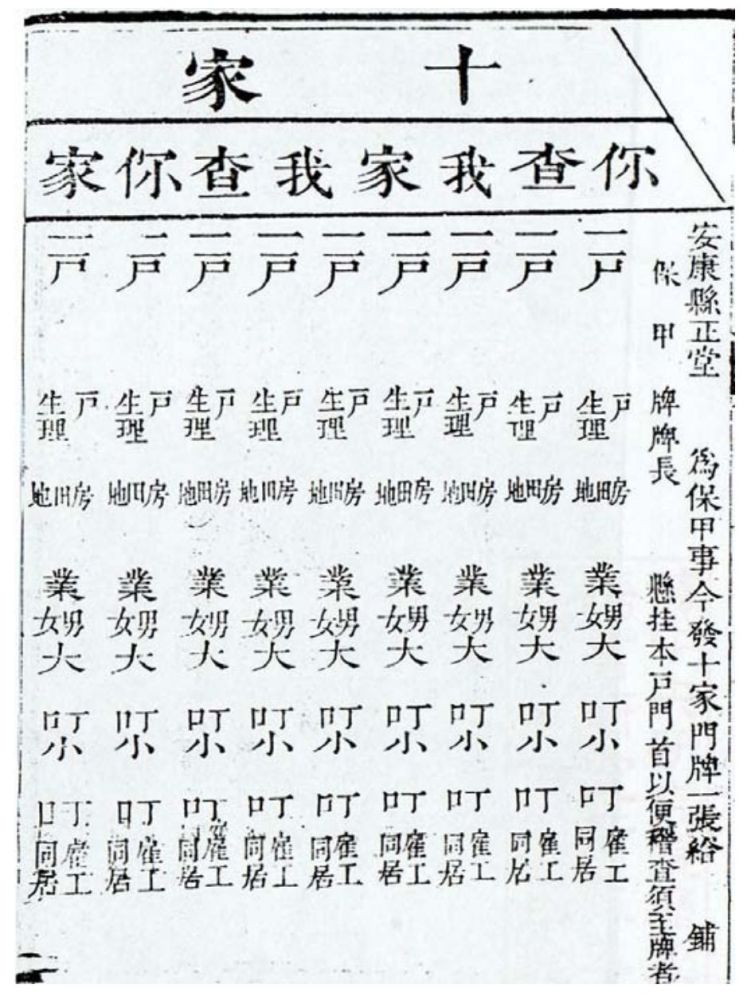 十家
你查我家我查你家
安康縣正堂 爲保甲事今發十家門牌一張給 鋪
保甲 牌牌長 懸挂本戸門首以便稽查須至牌者
一戸 戸生理 房田地 業男女大丁口小丁口雇工同居
一戸 戸生理 房田地 業男女大丁口小丁口雇工同居
一戸 戸生理 房田地 業男女大丁口小丁口雇工同居
一戸 戸生理 房田地 業男女大丁口小丁口雇工同居
一戸 戸生理 房田地 業男女大丁口小丁口雇工同居
一戸 戸生理 房田地 業男女大丁口小丁口雇工同居
一戸 戸生理 房田地 業男女大丁口小丁口雇工同居
一戸 戸生理 房田地 業男女大丁口小丁口雇工同居
一戸 戸生理 房田地 業男女大丁口小丁口雇工同居